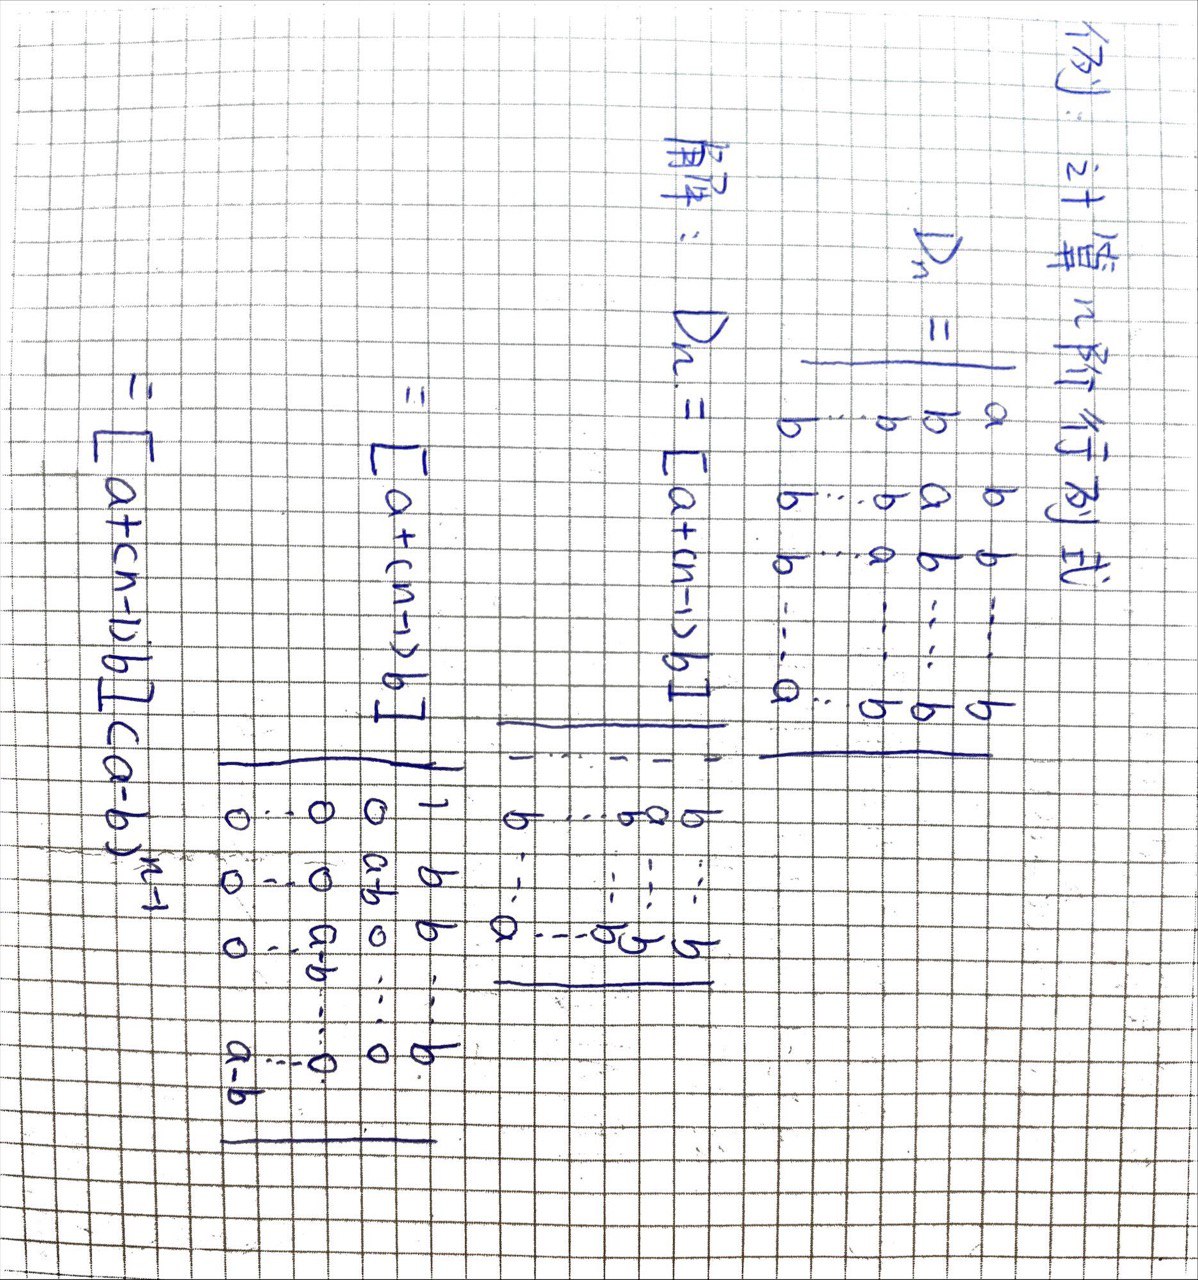 例: 计算n阶行列式
a b b ---- b
Dn = b a b ---- b
b b a ---- b
⋮ ⋮ ⋮ ⋮
b b b ---- a
解: Dn = [a+(n-1)b] 1 b --- b
1 a --- b
1 b --- b
⋮ ⋮ ⋮
1 b --- a
= [a+(n-1)b] 1 b b --- b
0 a-b 0 --- 0
0 0 a-b --- 0
⋮ ⋮ ⋮ ⋮
0 0 0 a-b
= [a+(n-1)b](a-b)^{n-1}